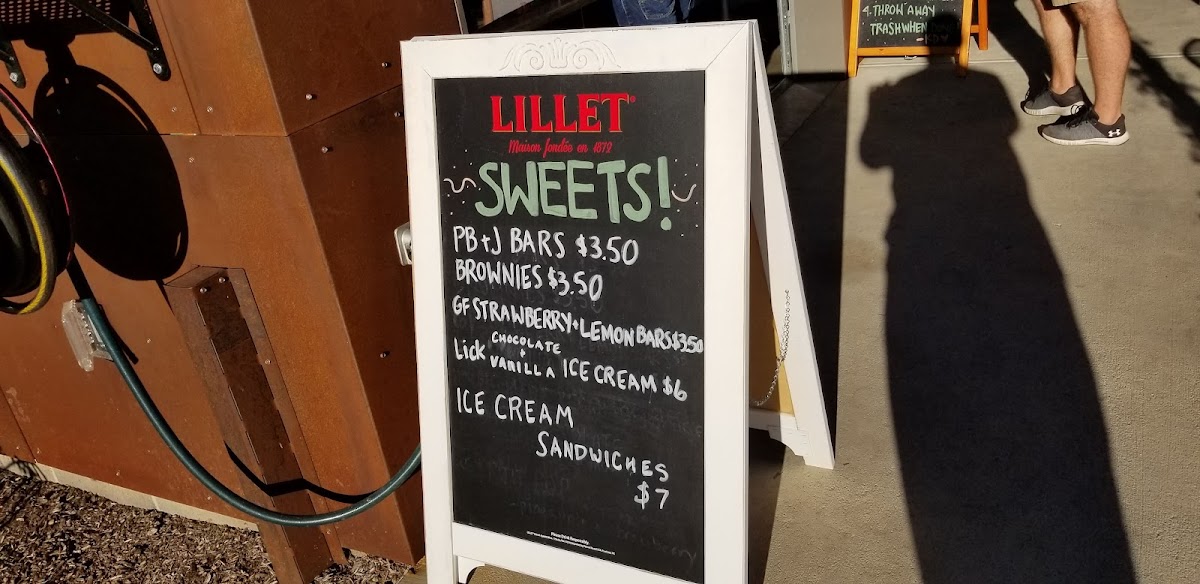 LILLET®
Maison fondée en 1872
SWEETS!
PB+J BARS $3.50
BROWNIES $3.50
GF STRAWBERRY + LEMON BARS $3.50
Lick CHOCOLATE + VANILLA ICE CREAM $6
ICE CREAM
SANDWICHES
$7
Please Drink Responsibly.
4. THROW AWAY
TRASH WHEN